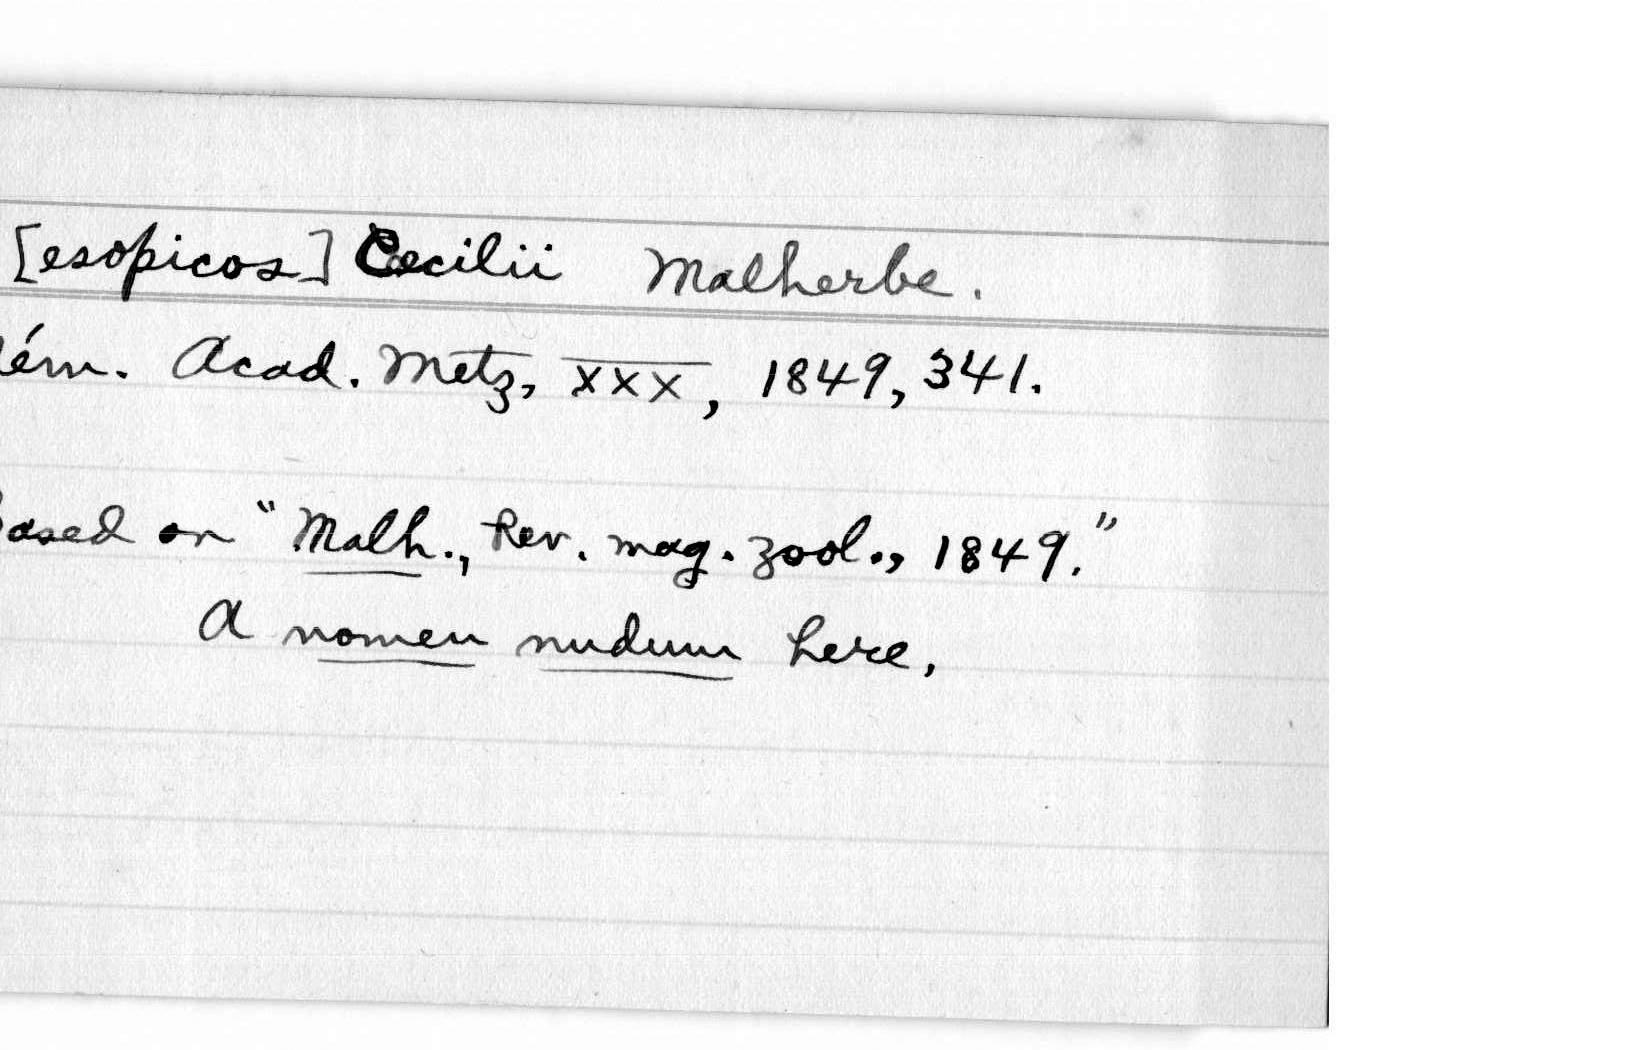 [esopicos] Cecilii Malherbe.
ém. Acad. Metz, XXX, 1849, 341.
ased on "Malh., Rev. mag. zool., 1849."
A nomen nudum here.